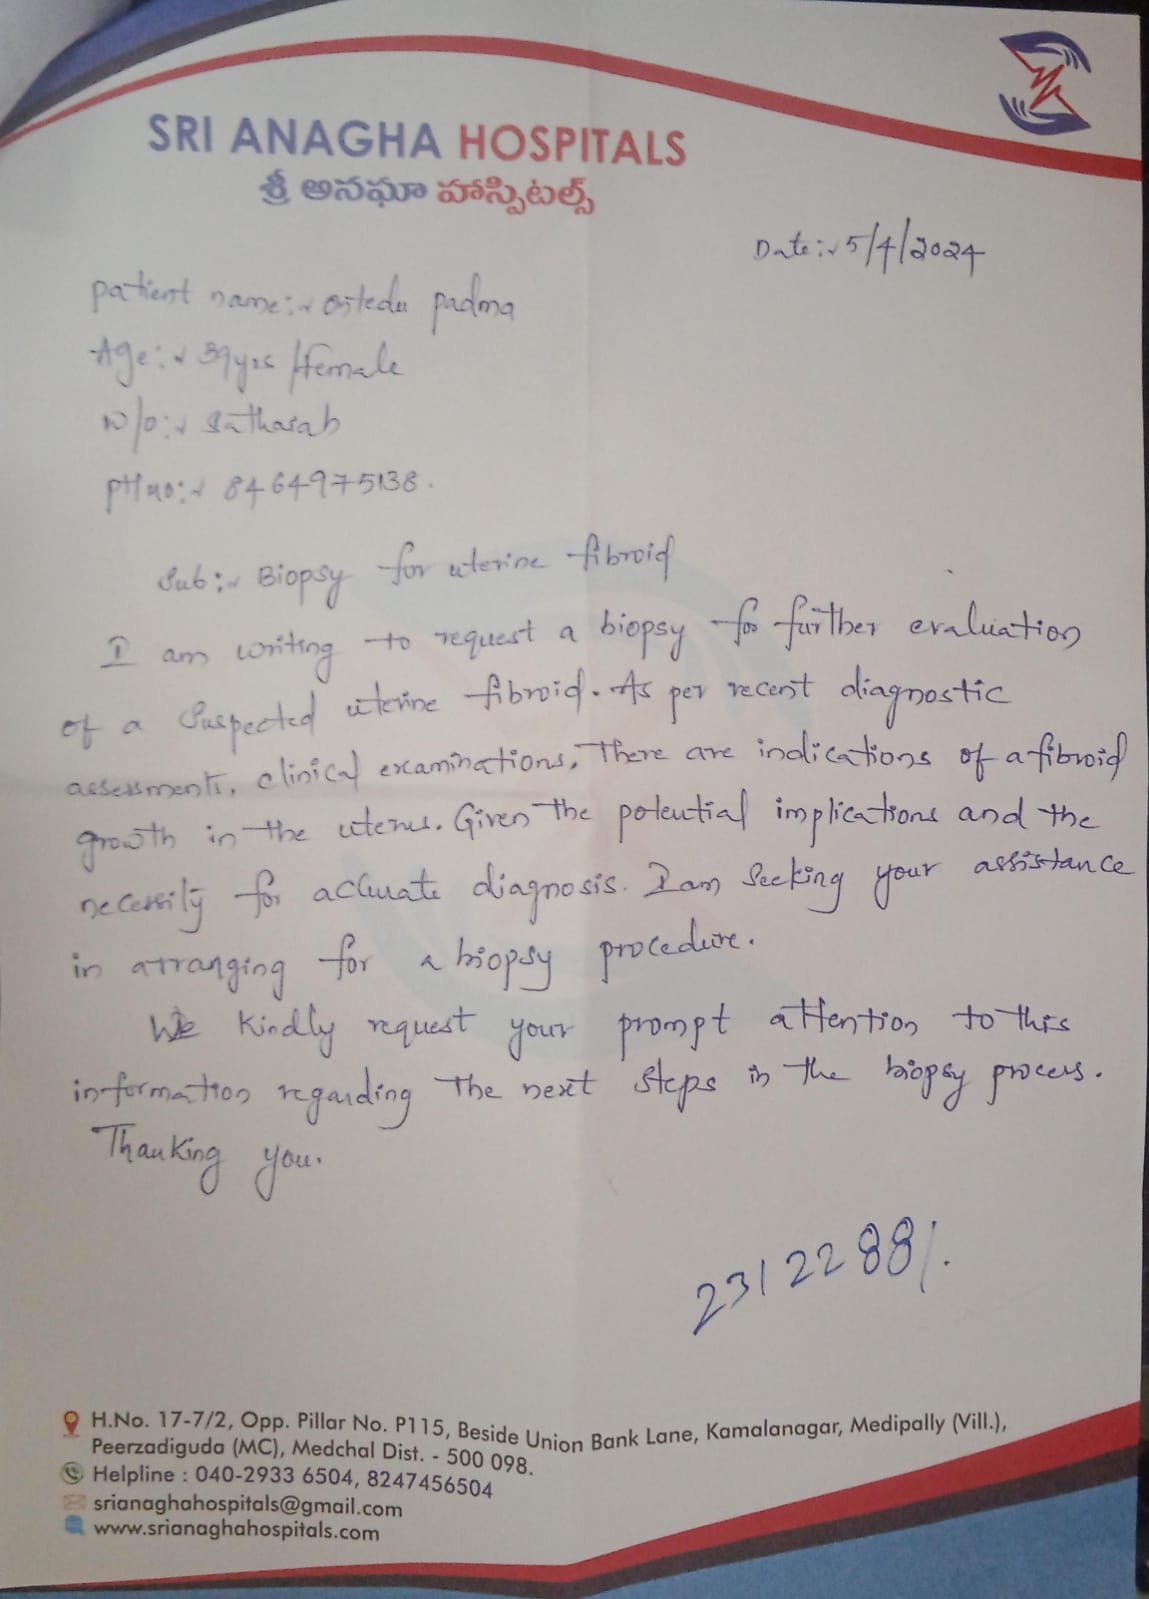 SRI ANAGHA HOSPITALS
శ్రీ అనఘా హాస్పిటల్స్
Date:- 5/4/2024
patient name:- padma
Age:- 39yrs /Female
W/o:-
pH no:- 8464975138.
Sub:- Biopsy for uterine fibroid
I am writing to request a biopsy for further evaluation
of a Suspected uterine fibroid. As per recent diagnostic
assessments, clinical examinations, There are indications of a fibroid
growth in the uterus. Given The potential implications and the
necessity for accurate diagnosis. I am Seeking your assistance
in arranging for a biopsy procedure.
We Kindly request your prompt attention to this
information regarding The next steps in the biopsy process.
Thanking you.
2312288/.
H.No. 17-7/2, Opp. Pillar No. P115, Beside Union Bank Lane, Kamalanagar, Medipally (Vill.),
Peerzadiguda (MC), Medchal Dist. - 500 098.
Helpline : 040-2933 6504, 8247456504
srianaghahospitals@gmail.com
www.srianaghahospitals.com